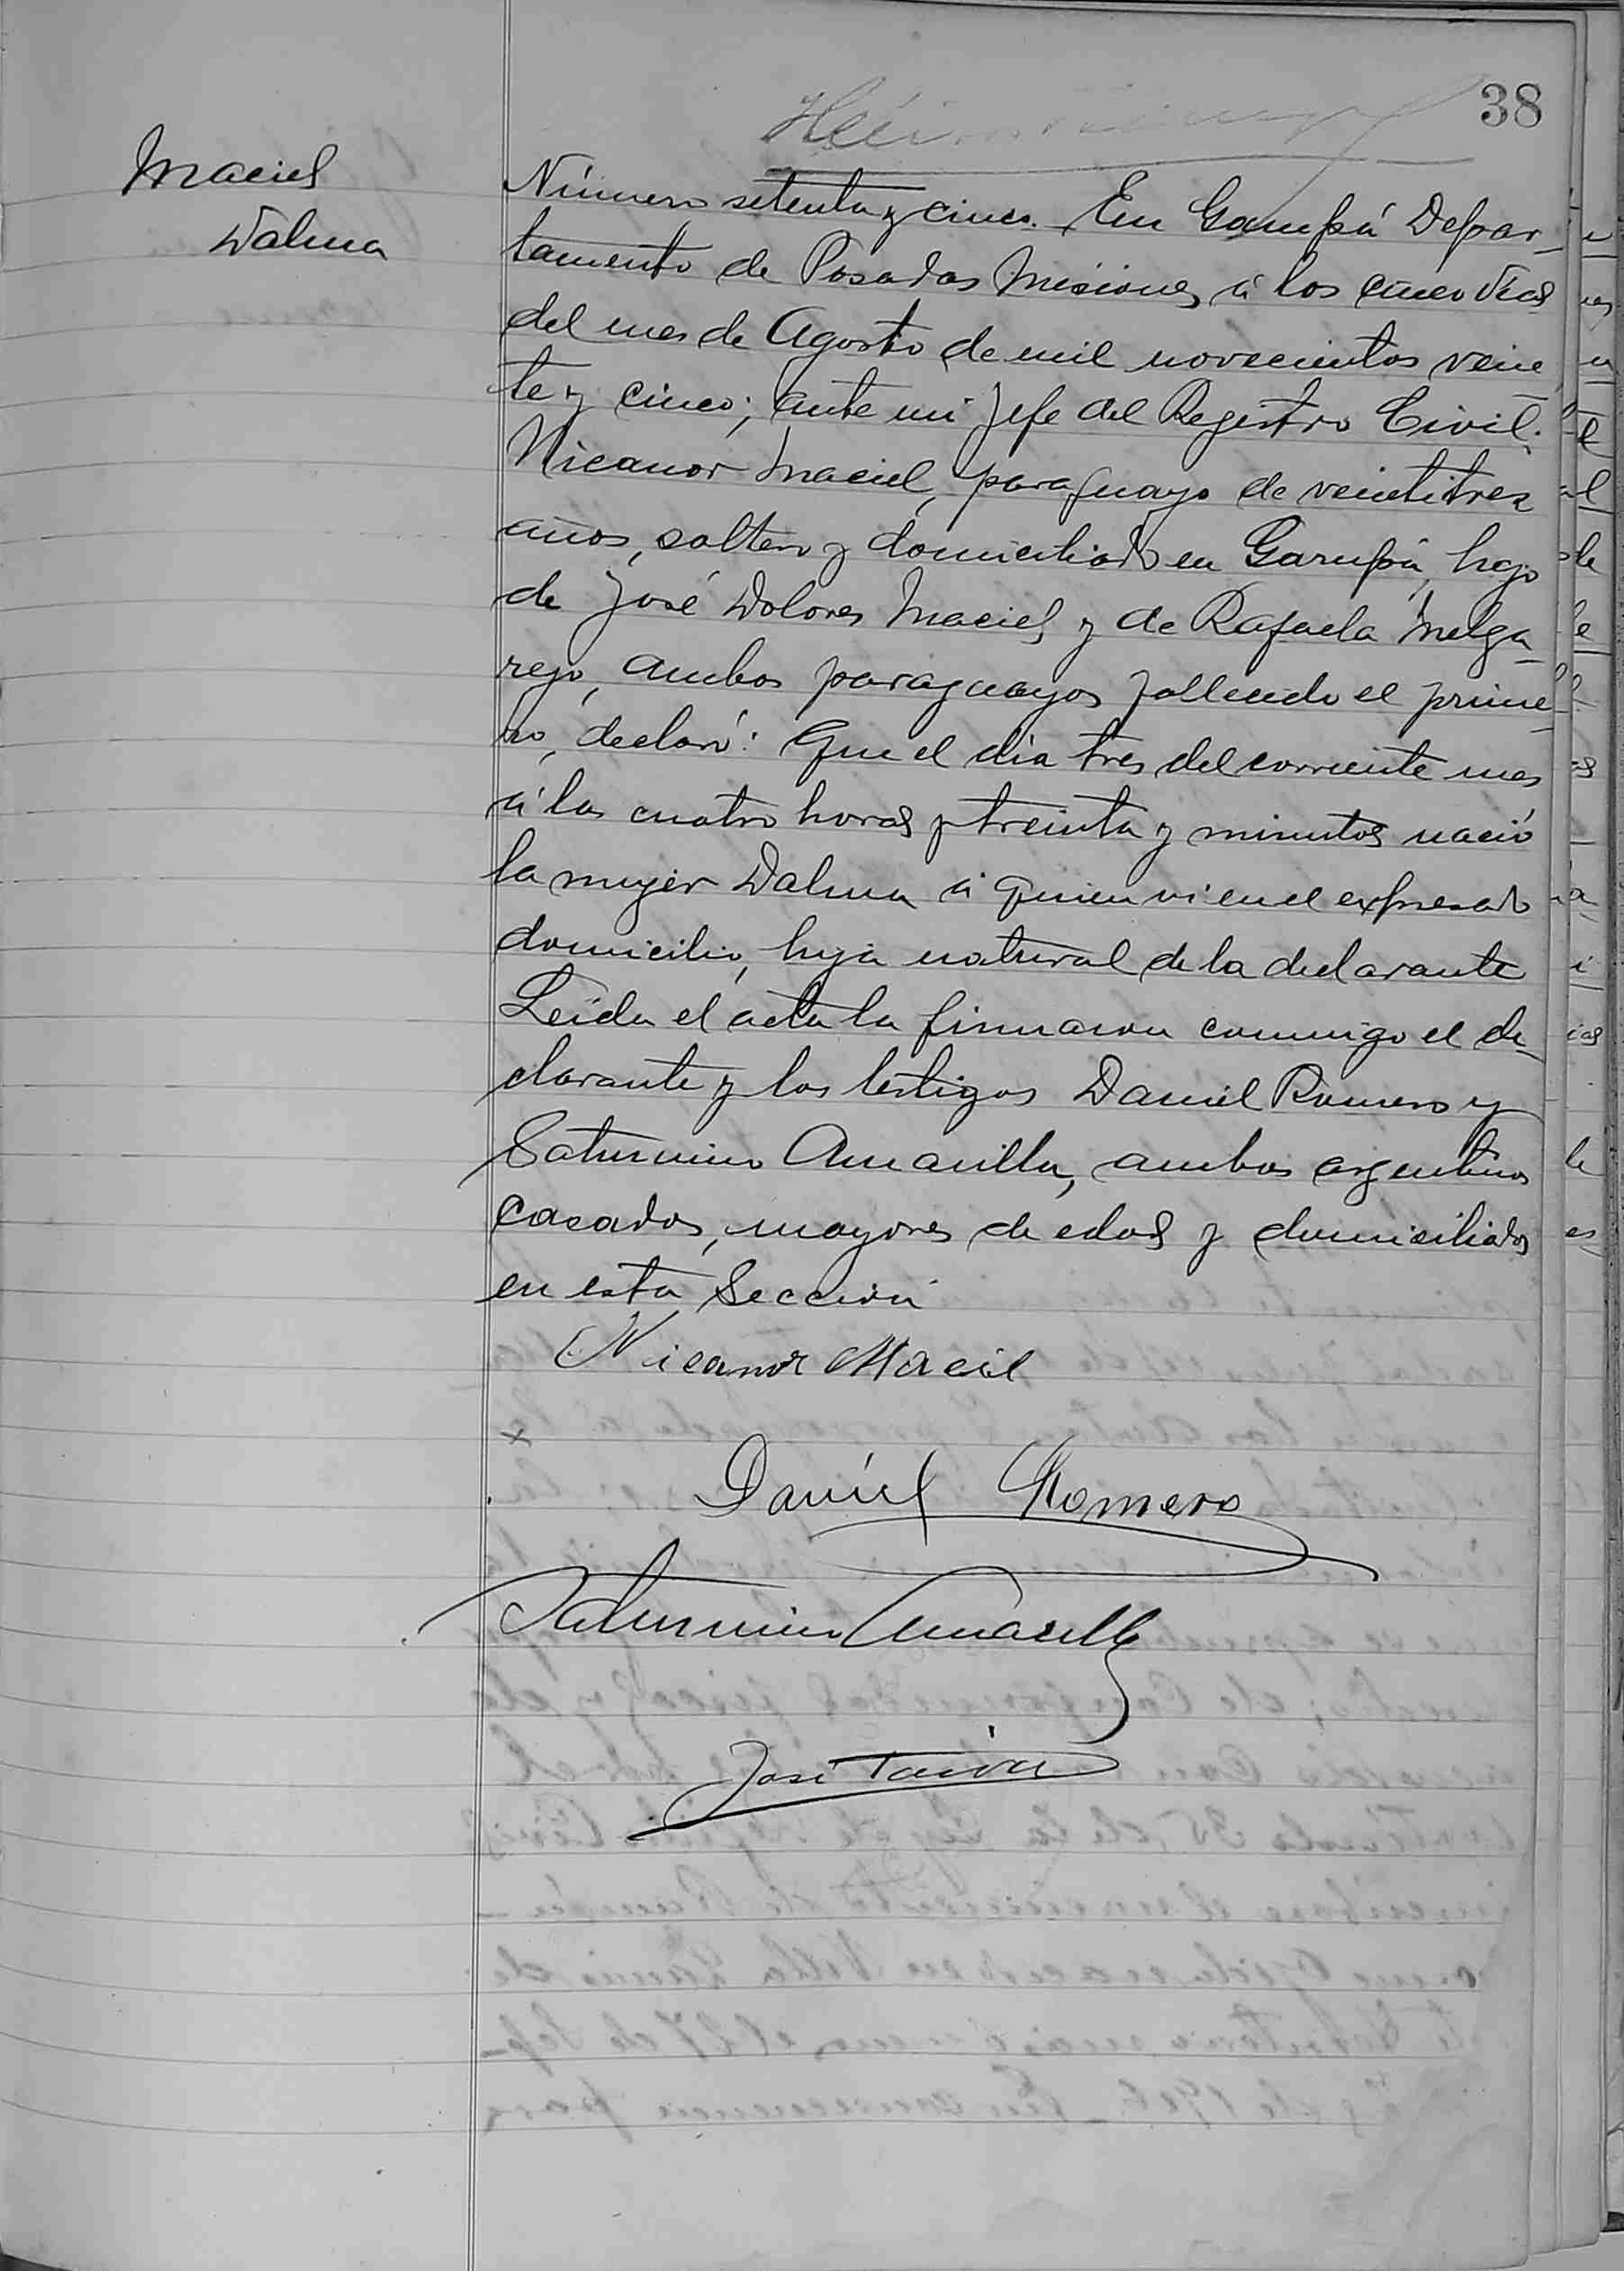 38
Maciel
Dalma
Número setenta y cinco. En Garupá Depar-
tamento de Posadas Misiones á los cinco dias
del mes de Agosto de mil novecientos vein
te y cinco; ante mi Jefe del Registro Civil.
Nicanor Maciel, paraguayo de veintitres
años, soltero y domiciliado en Garupá, hijo
de José Dolores Maciel y de Rafaela Melga-
rejo, ambos paraguayos fallecido el prime-
ro, declaró: Que el dia tres del corriente mes
á las cuatro horas y treinta y minutos nació
la mujer Dalma á quien vi en el expresado
domicilio, hija natural de la declarante
Leida el acta la firmaron conmigo el de-
clarante y los testigos Daniel Romero y
Saturnino Amarilla, ambos argentinos
casados, mayores de edad y domiciliados
en esta Sección
Nicanor Maciel
Daniel Romero
Saturnino Amarilla
José